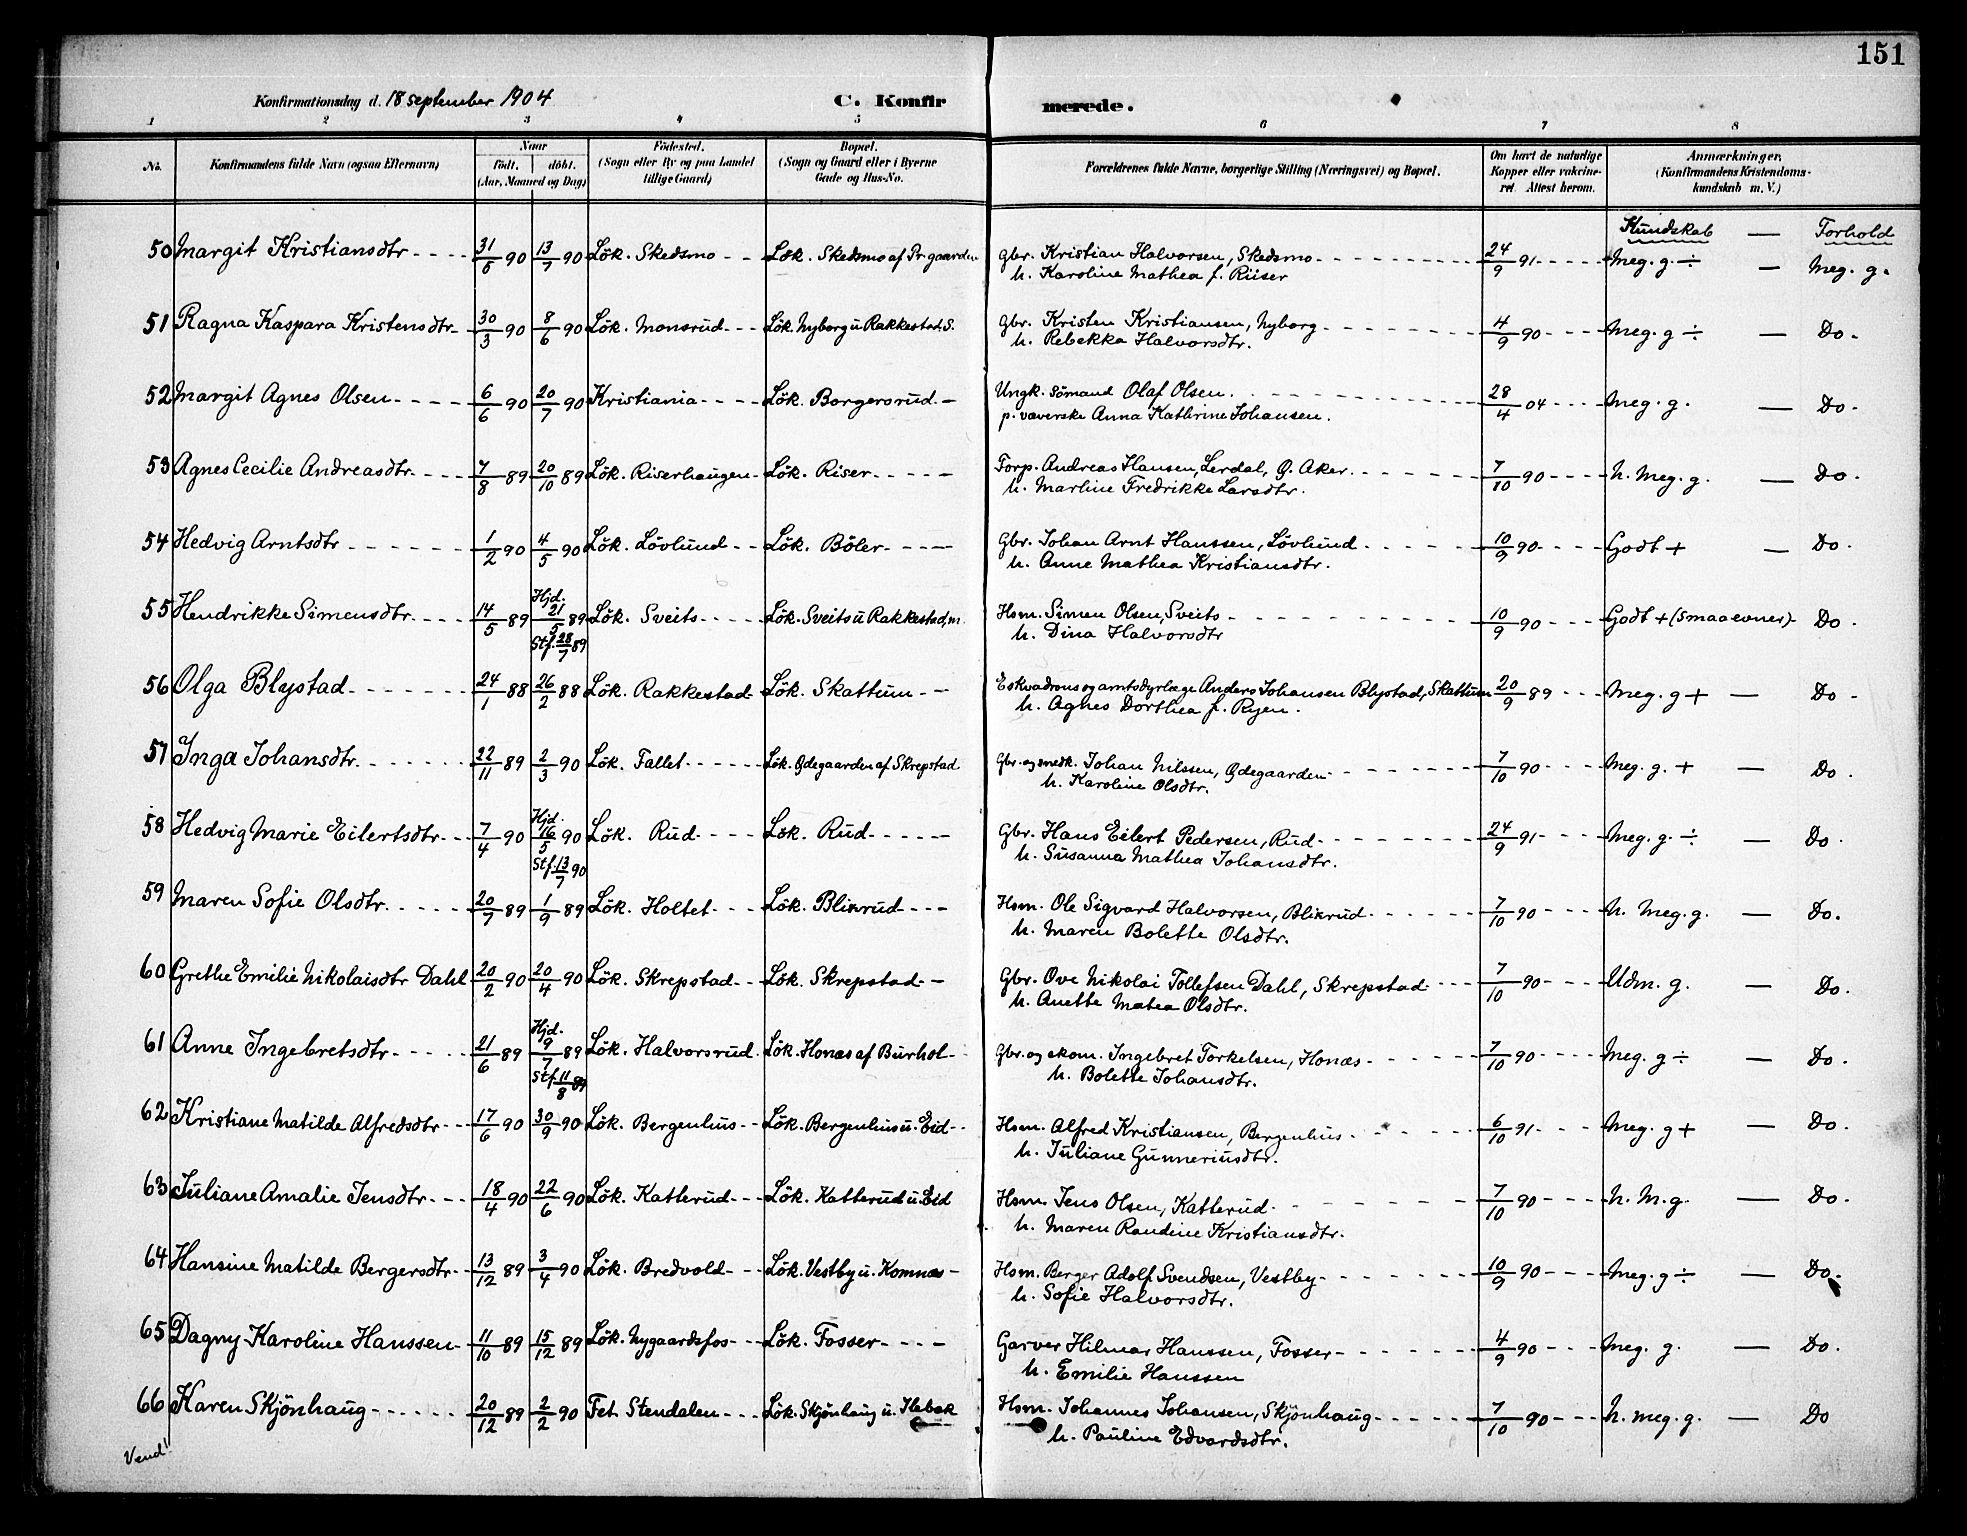 151
Konfirmationsdag d. 18 september 1904 C. Konfirmerede.
1 2 3 4 5 6 7 8
No. Konfirmandens fulde Navn (ogsaa Efternavn) Naar født. døbt. (Aar, Maaned og Dag) Fødested. (Sogn eller By og paa Landet tillige Gaard) Bopæl. (Sogn og Gaard eller i Byerne Gade og Hus-No. Forældrenes fulde Navne, borgerlige Stilling (Næringsvei) og Bopæl. Om havt de naturlige Kopper eller vakcineret. Attest herom. Anmærkninger, (Konfirmandens Kristendomskundskab m. V.)
Kundskab — Forhold
50 Margit Kristiansdtr 31/5 90 13/7 90 Løk. Skedsmo Løk. Skedsmo af Pr. gaarden Gbr. Kristian Halvorsen, Skedsmo 24/9 91 Meg. g. ÷ — Meg. g.
h. Karoline Mathea f. Riiser
51 Ragna Kaspara Kristensdtr 30/3 90 8/6 90 Løk. Monsrud Løk. Nyborg u. Rakkestad, S. Gbr. Kristen Kristiansen, Nyborg 4/9 90 Meg. g ÷ — Do.
h. Rebekka Halvorsdtr.
52 Margit Agnes Olsen 6/6 90 20/7 90 Kristiania Løk. Borgersrud Ungk. Sömand Olaf Olsen 28/4 04 Meg. g. — Do.
p. væverske Anna Kathrine Johansen.
53 Agnes Cecilie Andreasdtr. 7/8 89 20/10 89 Løk. Riserhaugen Løk. Riser Forp. Andreas Hansen, Lerdal, Ø. Aker 7/10 90 N. Meg. g. — Do.
h. Martine Fredrikke Larsdtr.
54 Hedvig Arntsdtr 1/2 90 4/5 90 Løk. Lövlund Løk. Böler Gbr. Johan Arnt Hanssen, Lövlund 10/9 90 Godt + — Do.
h. Anne Mathea Kristiansdtr.
55 Hendrikke Simensdtr. 14/5 89 Hjd. 21/5 89 Stf. 28/7 89 Løk. Sveits Løk. Sveits u Rakkestad, m. Hsm. Simen Olsen, Sveits 10/9 90 Godt + (Smaa evner) Do.
h. Dina Halvorsdtr
56 Olga Blystad 24/1 88 26/2 88 Løk. Rakkestad Løk. Skattum Eskvadrons og amtsdyrlæge Anders Johansen Blystad, Skattum 20/9 89 Meg. g + — Do.
h. Agnes Dorthea f. Ryen.
57 Inga Johansdtr. 22/11 89 2/3 90 Løk. Fallet Løk. Ødegaarden af Skrepstad Gbr. og smedk. Johan Nilssen, Ødegaarden 7/10 90 Meg. g. + — Do.
h. Karoline Olsdtr.
58 Hedvig Marie Eilertsdtr 7/4 90 Hjd. 16/5 90 Stf. 13/7 90 Løk. Rud Løk. Rud Gbr. Hans Eilert Pedersen, Rud 24/9 91 Meg. g. ÷ — Do.
h. Susanna Mathea Johansdtr.
59 Maren Sofie Olsdtr. 20/7 89 1/9 89 Løk. Holtet Løk. Blixrud Hsm. Ole Sigvard Halvorsen, Blixrud 7/10 90 N. Meg. g. — Do.
h. Maren Bolette Olsdtr.
60 Grethe Emilie Nikolaisdtr Dahl 20/2 90 20/4 90 Løk. Skrepstad Løk. Skrepstad Gbr. Ove Nikolai Tollefsen Dahl, Skrepstad 7/10 90 Udm. g. — Do.
h. Anette Matea Olsdtr.
61 Anne Ingebretsdtr 21/6 89 Hjd. 9/7 89 Stf. 11/8 89 Løk. Halvorsrud Løk. Honæs af Burhol Gbr. og økom. Ingebret Torkelsen, Honæs 7/10 90 Meg. g ÷ — Do.
h. Bolette Johansdtr.
62 Kristiane Matilde Alfredsdtr 17/6 90 30/9 90 Løk. Bergenhus Løk. Bergenhus u. Eid Hsm. Alfred Kristiansen, Bergenhus 6/10 91 Meg. g + — Do.
h. Juliane Gunneriusdtr.
63 Juliane Amalie Jensdtr 18/4 90 22/6 90 Løk. Katterud Løk. Katterud u. Eid Hsm. Jens Olsen, Katterud 7/10 90 N. M. g. — Do.
h. Maren Randine Kristiansdtr.
64 Hansine Matilde Bergersdtr 13/12 89 3/4 90 Løk. Bredvold Løk. Vestby u. Komnæs Hsm. Berger Adolf Svendsen, Vestby 10/9 90 Meg. g ÷ — Do.
h. Sofie Halvorsdtr.
65 Dagny Karoline Hanssen 11/10 89 15/12 89 Løk. Nygaardsfos Løk. Fosser Garver Hilmar Hanssen, Fosser 4/9 90 Meg. g. — Do.
h. Emilie Hanssen
66 Karen Skjönhaug 20/12 89 2/2 90 Fet Stendalen Løk. Skjönhaug u. Hebæk Hsm. Johannes Johansen, Skjönhaug 7/10 90 N. meg. g. — Do
h. Pauline Edvardsdtr.
Vend!